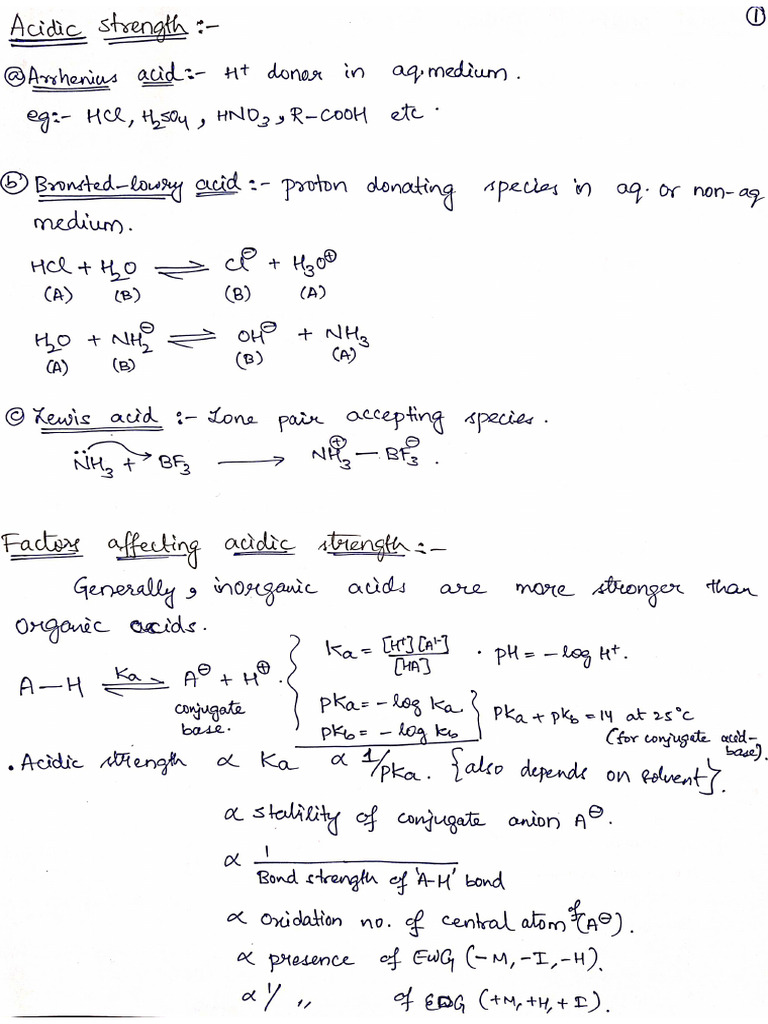 ①
Acidic strength :-
ⓐ Arrhenius acid :- H⁺ donor in aq. medium.
eg:- HCl, H₂SO₄, HNO₃, R-COOH etc.
ⓑ Bronsted-lowry acid :- proton donating species in aq. or non-aq
medium.
HCl + H₂O ⇌ Cl⊖ + H₃O⊕
(A) (B) (B) (A)
H₂O + NH₂⊖ ⇌ OH⊖ + NH₃
(A) (B) (B) (A)
ⓒ Lewis acid :- Lone pair accepting species.
N̈H₃ + BF₃ ⟶ NH₃⊕ — BF₃⊖.
Factors affecting acidic strength :-
Generally, inorganic acids are more stronger than
organic acids.
A—H ⇌ Ka A⊖ + H⊕.
conjugate
base.
Ka = [H⁺][A⁻]/[HA] . pH = -log H⁺.
pKa = -log Ka.
pKb = -log Kb
pKa + pKb = 14 at 25°C
(for conjugate acid-
base).
• Acidic strength ∝ Ka ∝ 1/pKa. {also depends on solvent}.
∝ stability of conjugate anion A⊖.
∝ 1/Bond strength of 'A-H' bond
∝ oxidation no. of central atom of (A⊖).
∝ presence of EWG (-M, -I, -H).
∝ 1/ ,, of EDG (+M, +H, +I).